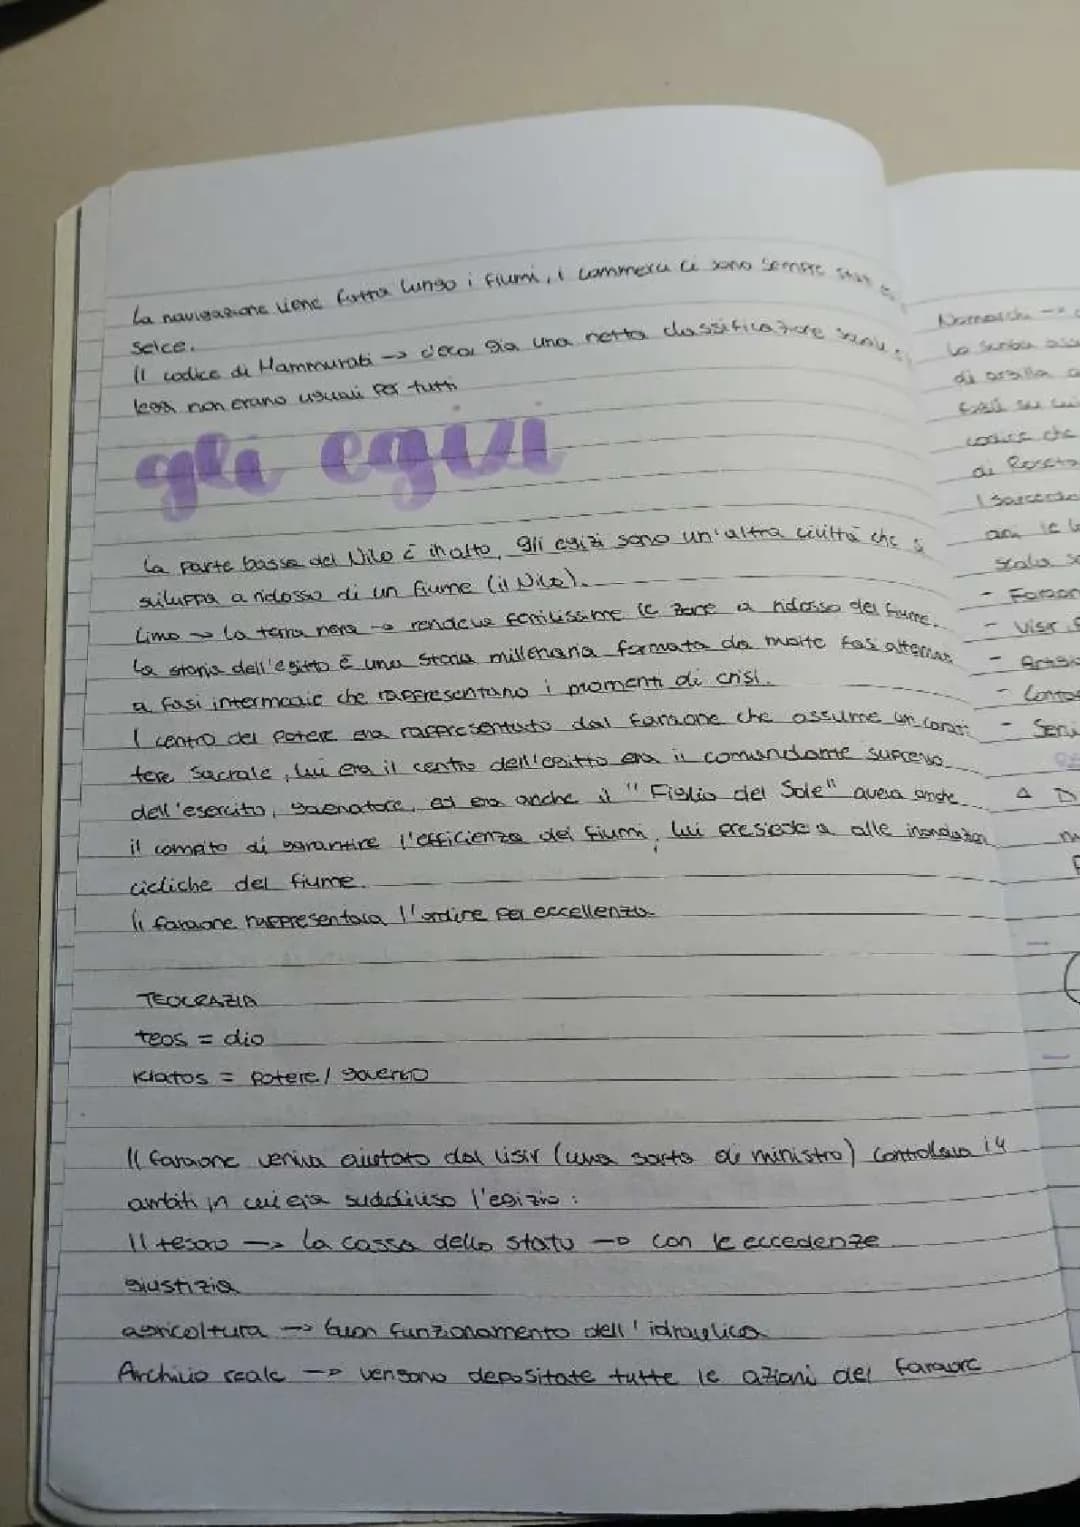 La navigazione viene fatta lungo i fiumi, i commerci ci sono sempre stati
selce.
Il codice di Hammurabi → c'era già una netta classificazione
leggi non erano uguali per tutti
gli egizi
La parte bassa del Nilo è in alto, gli egizi sono un'altra civiltà che si
sviluppa a ridosso di un fiume (il Nilo).
Limo → la terra nera → rendeva fertilissime le zone a ridosso del fiume.
La storia dell'egitto è una storia millenaria formata da molte fasi alternate
a fasi intermedie che rappresentano i momenti di crisi.
Il centro del potere era rappresentato dal faraone che assume un carat
tere sacrale, lui era il centro dell'egitto era il comandante supremo
dell'esercito, governatore, ed era anche il "Figlio del Sole" aveva anche
il compito di garantire l'efficienza dei fiumi, lui presiedeva alle inondazioni
cicliche del fiume.
Il faraone rappresentava l'ordine per eccellenza
TEOCRAZIA
teos = dio
Kratos = potere / governo
Il faraone veniva aiutato dal visir (una sorta di ministro) controllava i 4
ambiti in cui era suddiviso l'egizio:
Il tesoro → la cassa dello stato → con le eccedenze
giustizia
agricoltura → buon funzionamento dell'idraulica
Archivio reale → vengono depositate tutte le azioni del faraone
Nomarchi →
Lo scriba
di argilla
su cui
codice che
di Roseta
I sacerdoti
scala
- Faraon
- Visir
- Contad
- Servi